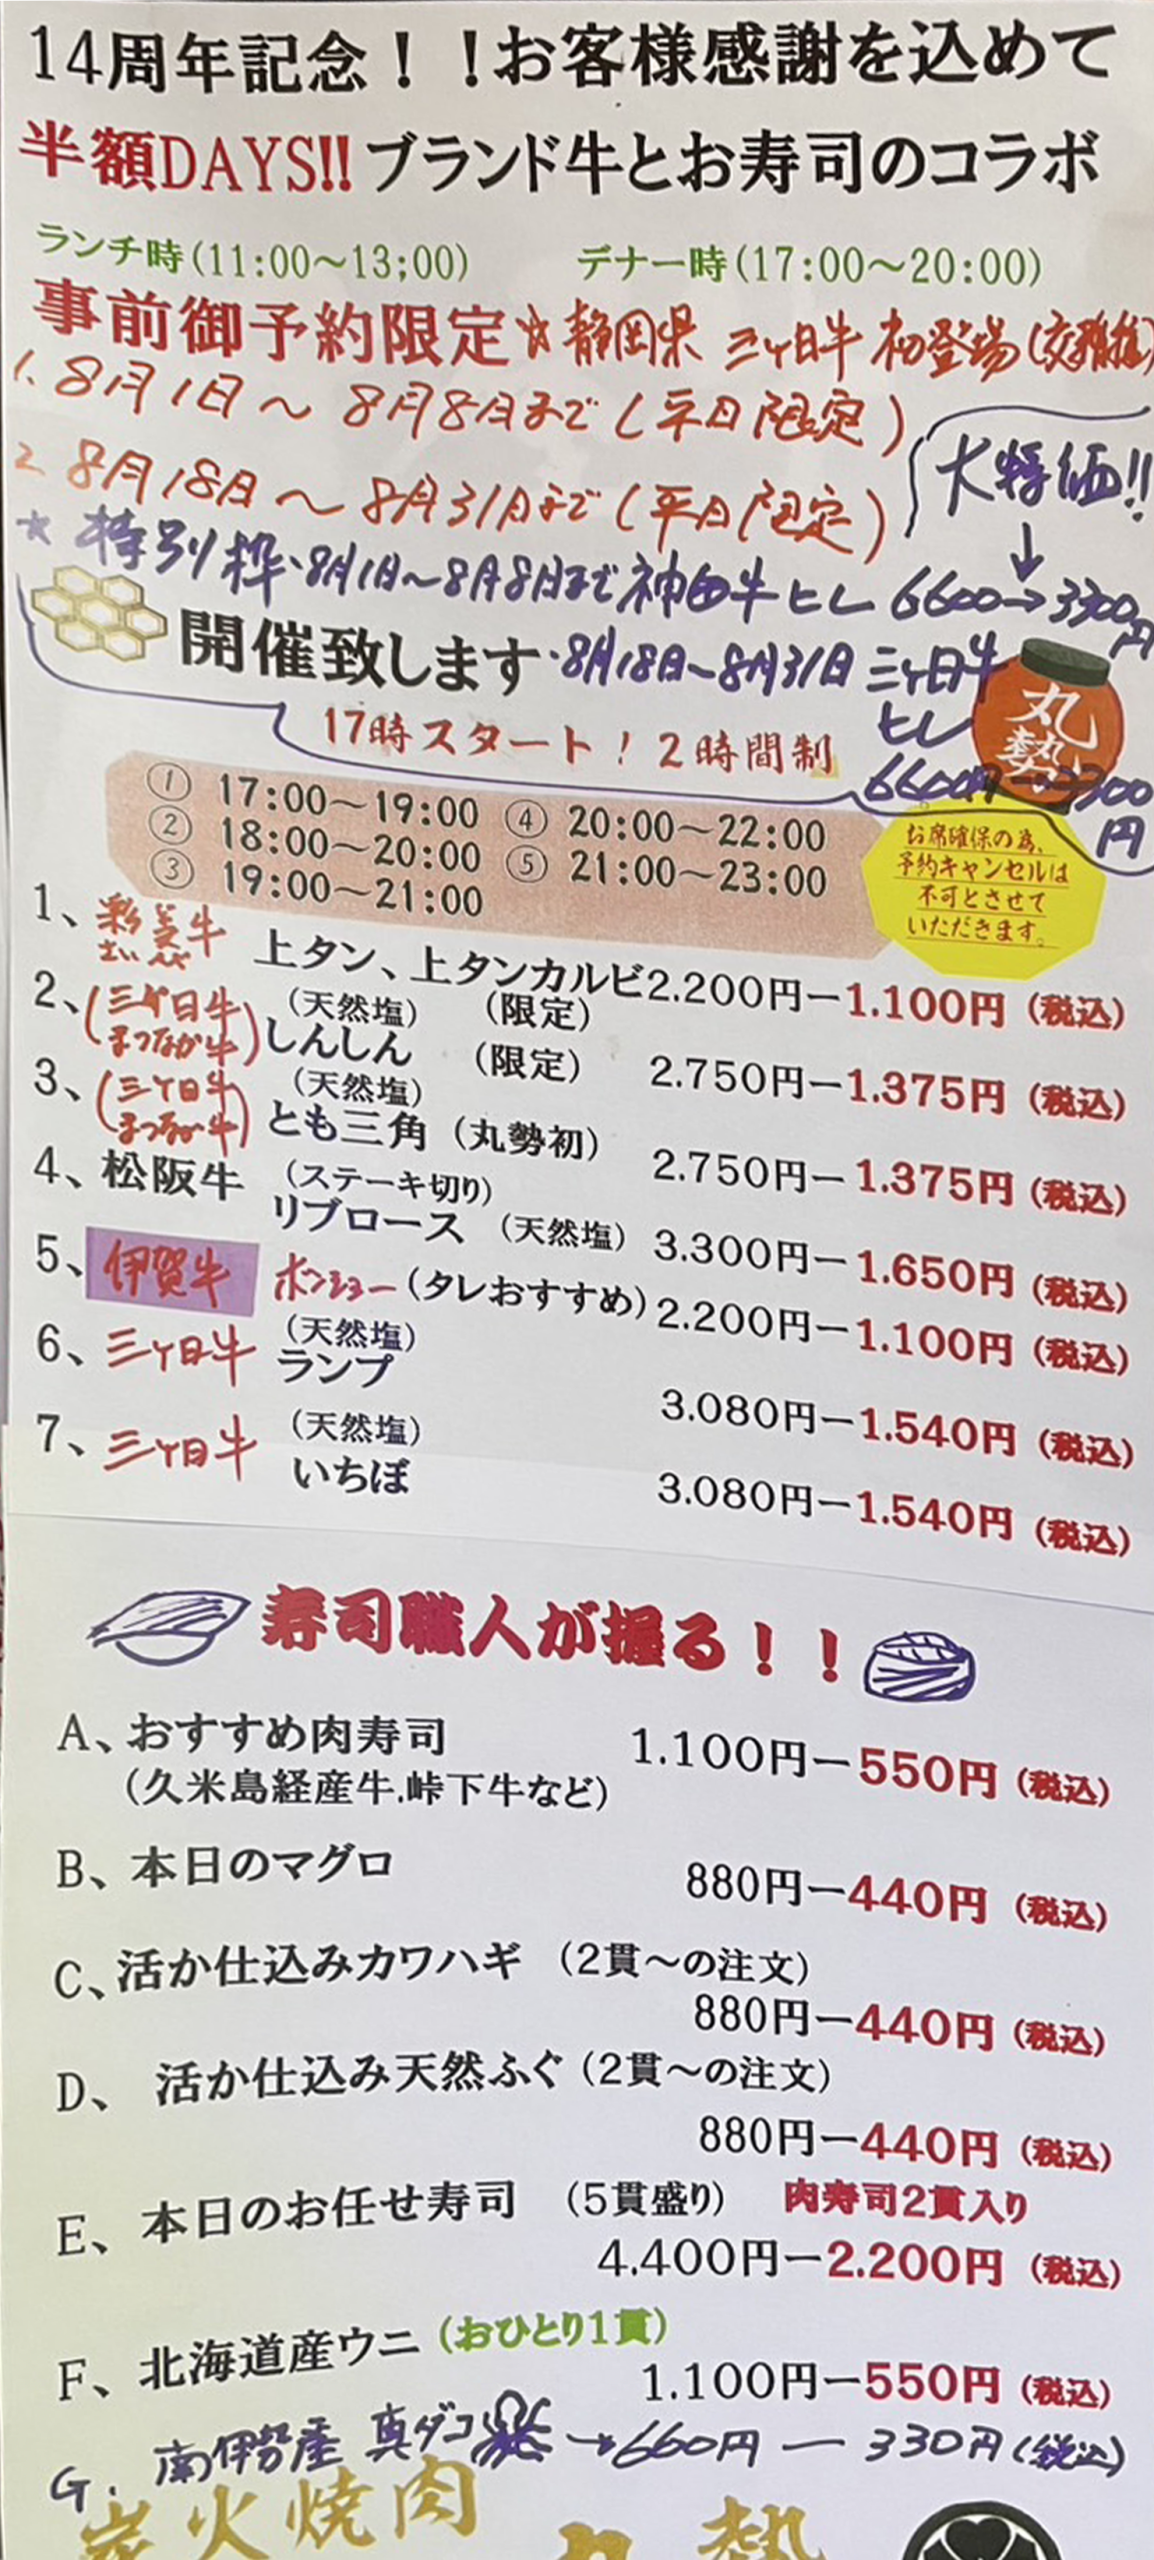 14周年記念！！お客様感謝を込めて
半額DAYS!!ブランド牛とお寿司のコラボ
ランチ時(11:00～13;00)　デナー時(17:00～20:00)
事前御予約限定☆静岡県 三ヶ日牛 初登場
1. 8月1日～8月8日まで(平日限定)
2. 8月18日～8月31日まで(平日限定)
大特価!!
↓
★特別枠・8月1日～8月8日まで神田牛ヒレ 6600→3300円
開催致します・8月18日～8月31日 三ヶ日牛
ヒレ
6600円→3300円
丸勢
17時スタート！2時間制
① 17:00～19:00 ④ 20:00～22:00
② 18:00～20:00 ⑤ 21:00～23:00
③ 19:00～21:00
お席確保の為、
予約キャンセルは
不可とさせて
いただきます。
1、彩美牛 上タン、上タンカルビ2.200円ー1.100円（税込）
(天然塩)　(限定)
2、(三ヶ日牛 まつなが牛) しんしん (限定) 2.750円ー1.375円（税込）
(天然塩)
3、(三ヶ日牛 まつなが牛) とも三角 (丸勢初) 2.750円ー1.375円（税込）
(ステーキ切り)
4、松阪牛 リブロース (天然塩) 3.300円ー1.650円（税込）
5、伊賀牛 ボンショー(タレおすすめ)2.200円ー1.100円（税込）
(天然塩)
6、三ヶ日牛 ランプ 3.080円ー1.540円（税込）
(天然塩)
7、三ヶ日牛 いちぼ 3.080円ー1.540円（税込）
寿司職人が握る！！
A、おすすめ肉寿司 1.100円ー550円（税込）
(久米島経産牛.峠下牛など)
B、本日のマグロ 880円ー440円（税込）
C、活か仕込みカワハギ （2貫～の注文）
880円ー440円（税込）
D、活か仕込み天然ふぐ（2貫～の注文）
880円ー440円（税込）
E、本日のお任せ寿司 （5貫盛り） 肉寿司2貫入り
4.400円ー2.200円（税込）
F、北海道産ウニ（おひとり1貫）
1.100円ー550円（税込）
G. 南伊勢産 真ダコ→660円ー330円(税込)
炭火焼肉 丸勢